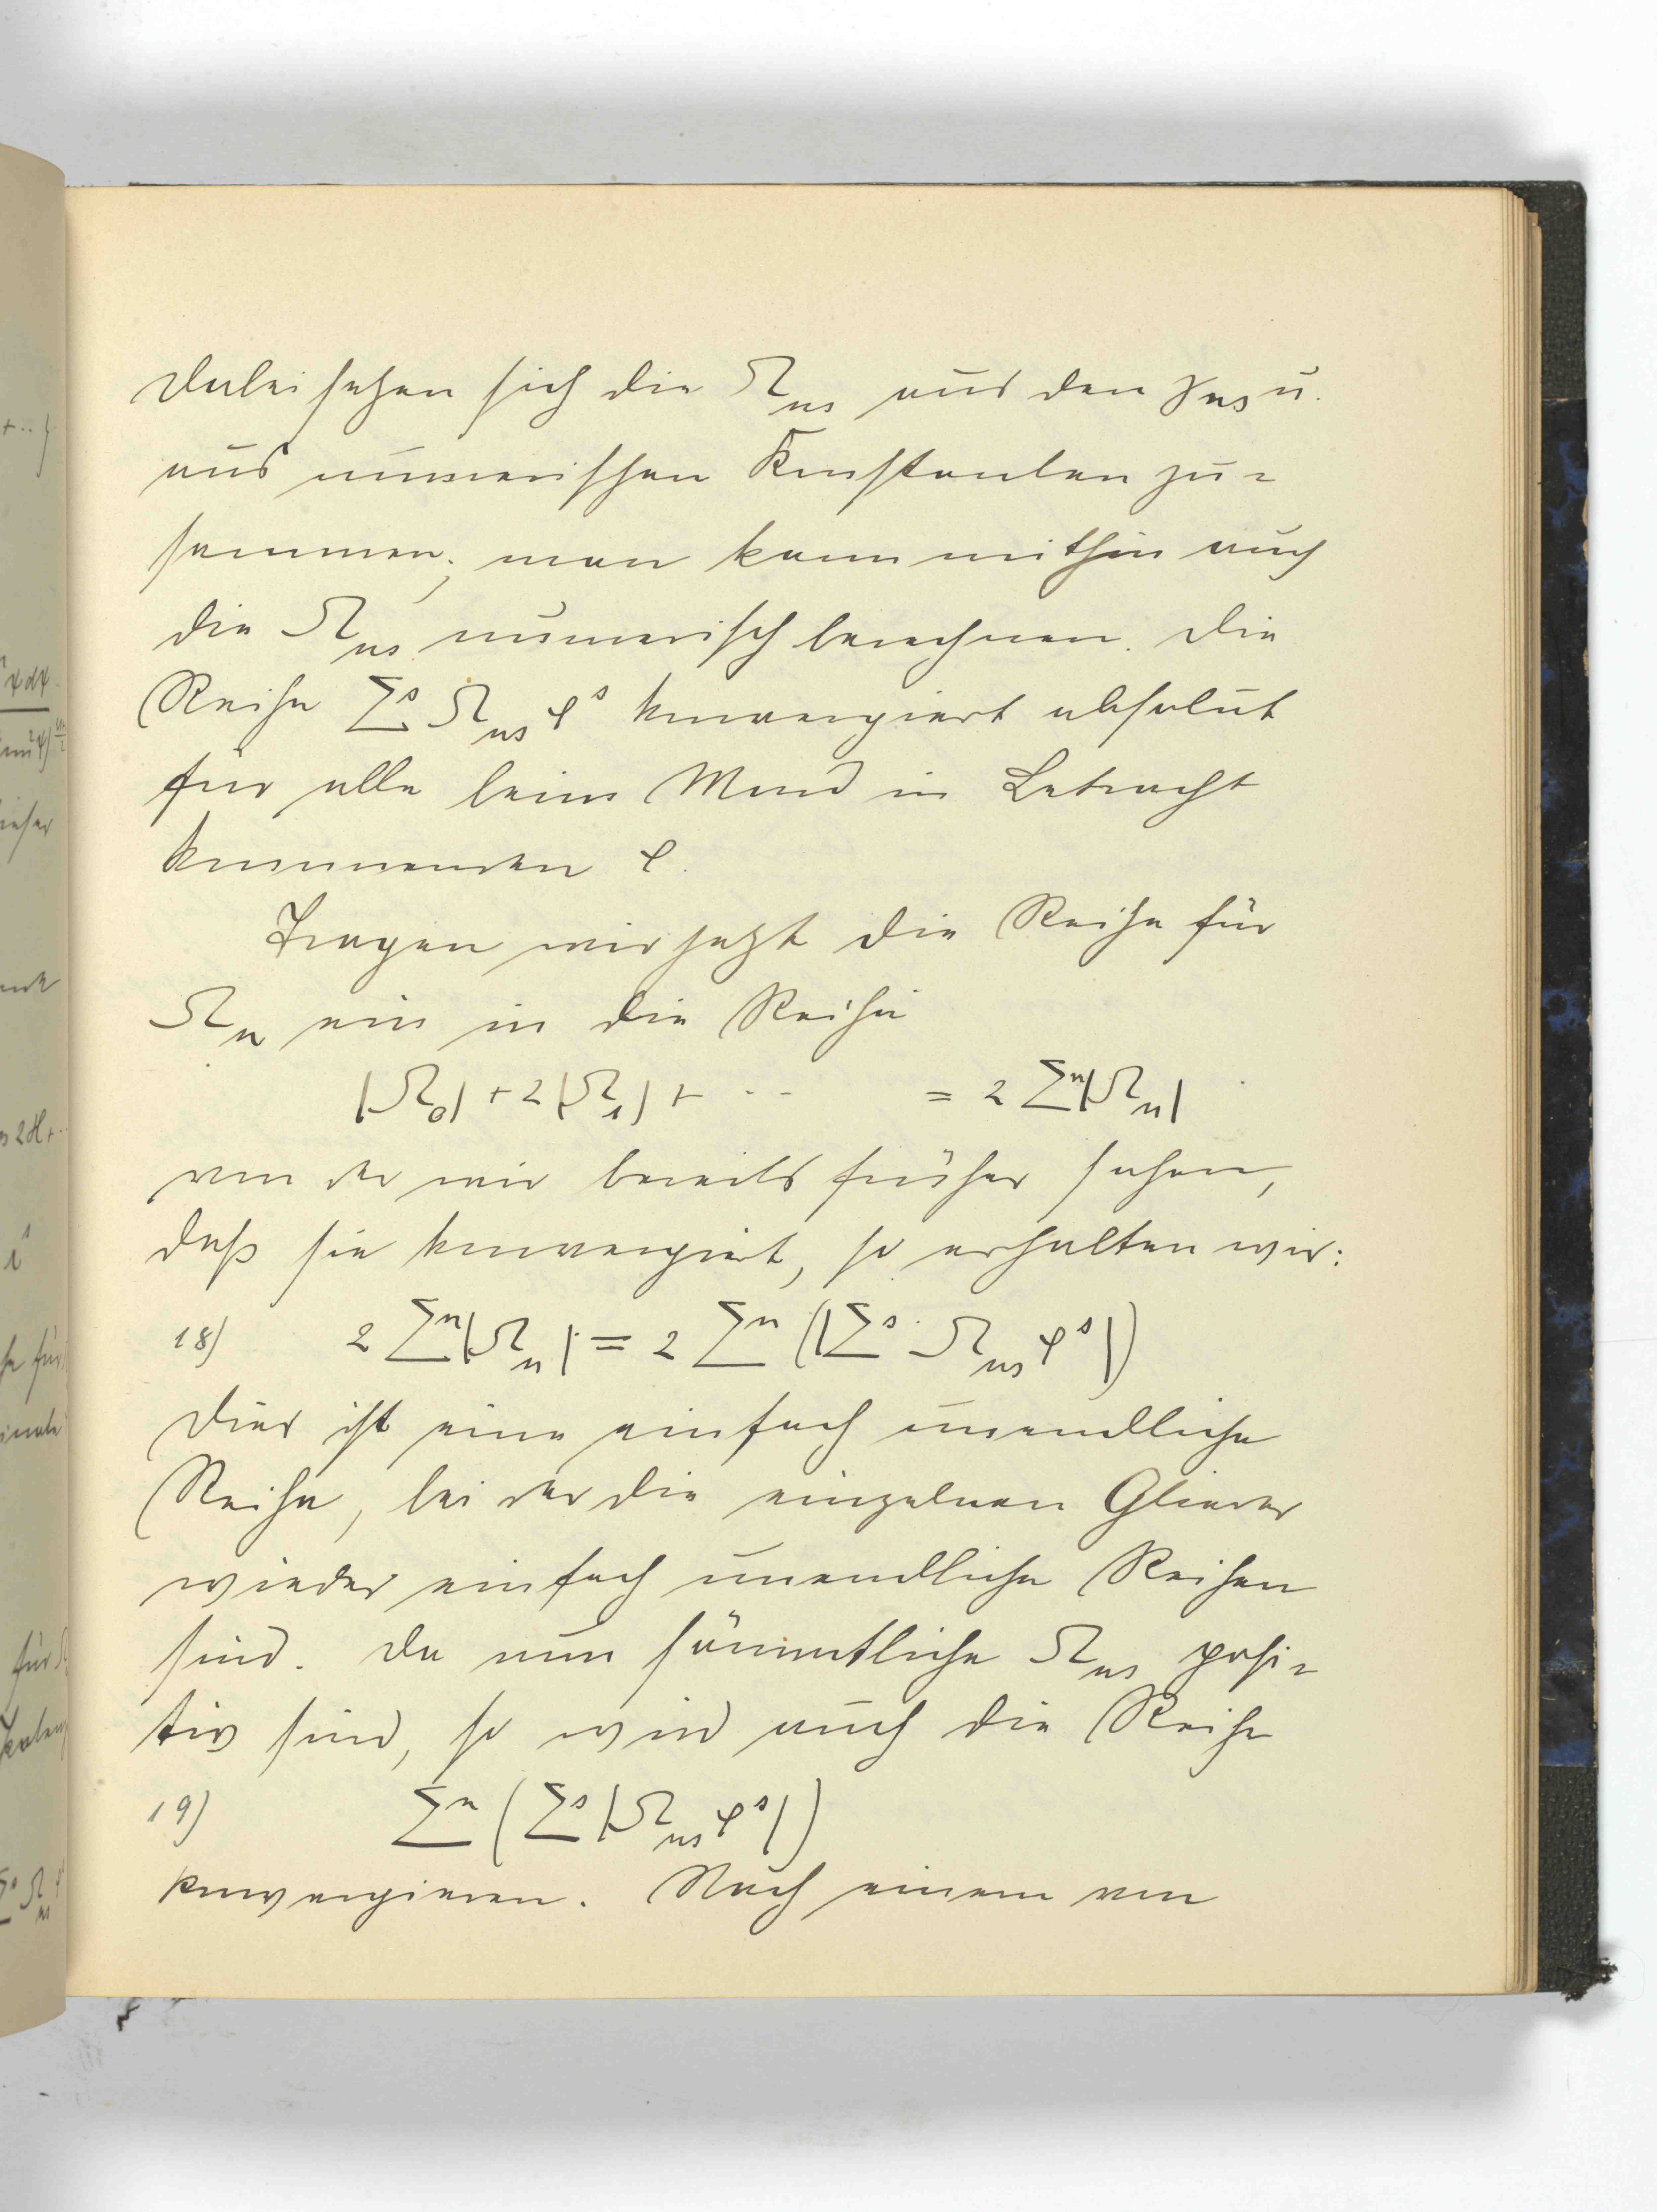 Dabei setzen sich die Ω_ns aus den γ_ns u.
aus numerischen Konstanten zu=
sammen; man kann mithin auch
die Ω_ns numerisch berechnen. Die
Reihe Σ^s Ω_ns φ^s konvergiert absolut
für alle beim Mond in Betracht
kommenden φ.
Tragen wir jetzt die Reihe für
Ω_n ein in die Reihe
|Ω_0| + 2|Ω_1| + ·· = 2 Σ^n|Ω_n|
von der wir bereits früher sahen,
daß sie konvergiert, so erhalten wir:
18) 2 Σ^n|Ω_n| = 2 Σ^n (|Σ^s Ω_ns φ^s|)
Dies ist eine einfach unendliche
Reihe, bei der die einzelnen Glieder
wieder einfach unendliche Reihen
sind. Da nun sämmtliche Ω_ns posi=
tiv sind, so wird auch die Reihe
19) Σ^n (Σ^s |Ω_ns φ^s|)
konvergieren. Nach einem von